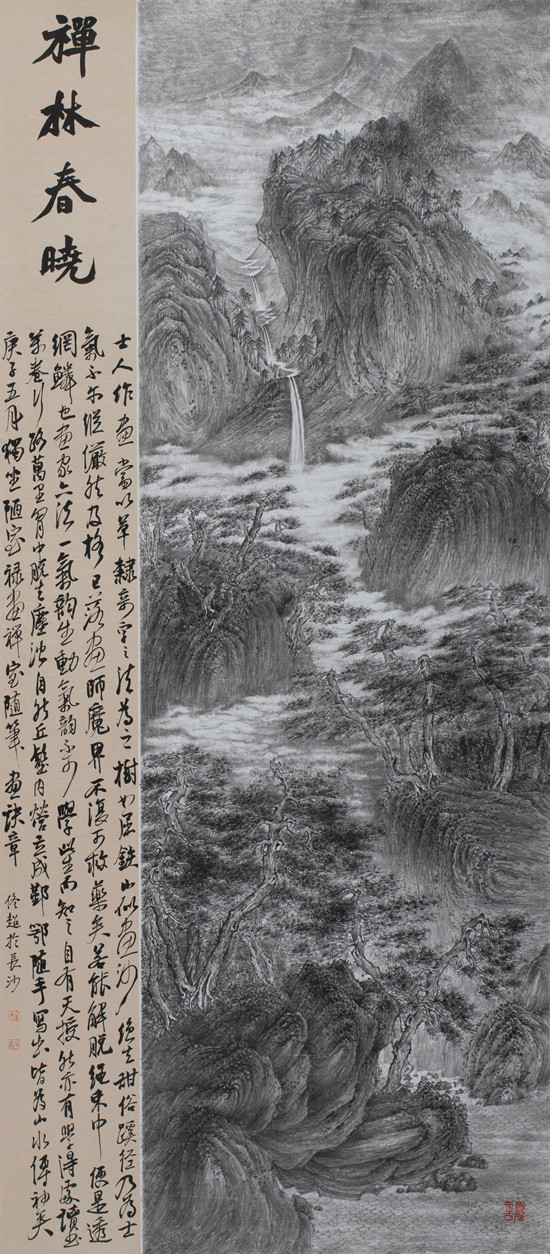 禪林春曉
士人作畫當以草隸奇字之法為之樹如屈鐵山似畫沙絕去甜俗蹊徑乃為士
氣不尔縱儼然及格已落畫師魔界不復可救藥矣若能解脫繩束中便是透
網鱗也畫家六法一氣韻生動氣韻不可學此生而知之自有天授然亦有學得處讀書
萬卷行路萬里胸中脫去塵濁自然丘壑內營立成鄞鄂隨手寫出皆為山水傳神矣
庚子五月獨坐陋室録畫禪室隨筆畫訣章
超於長沙